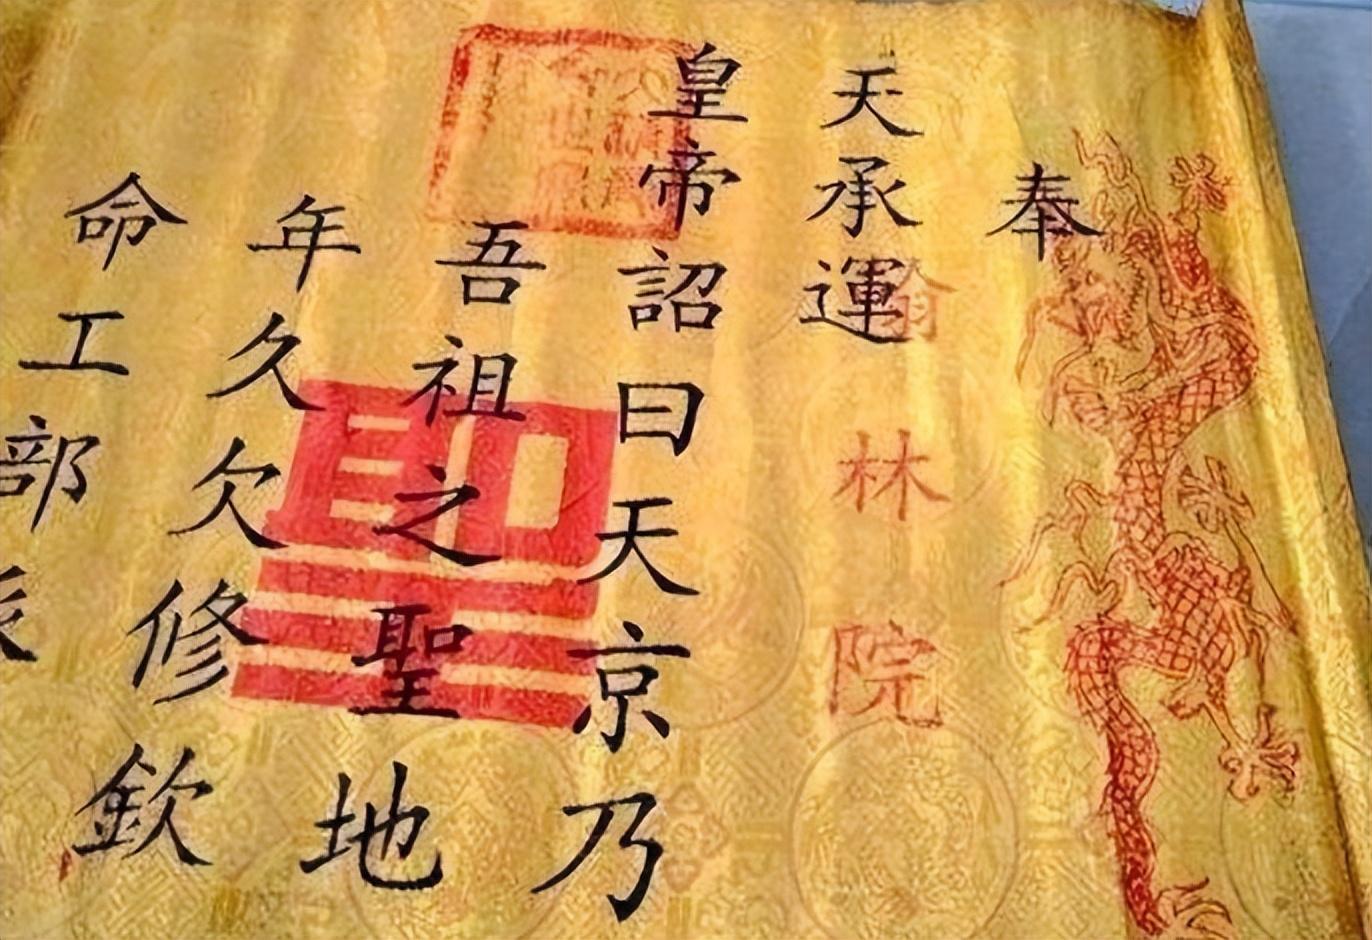 奉
天承運
翰林院
皇帝詔曰天京乃
吾祖之聖地
聖
年久欠修欽
命工部